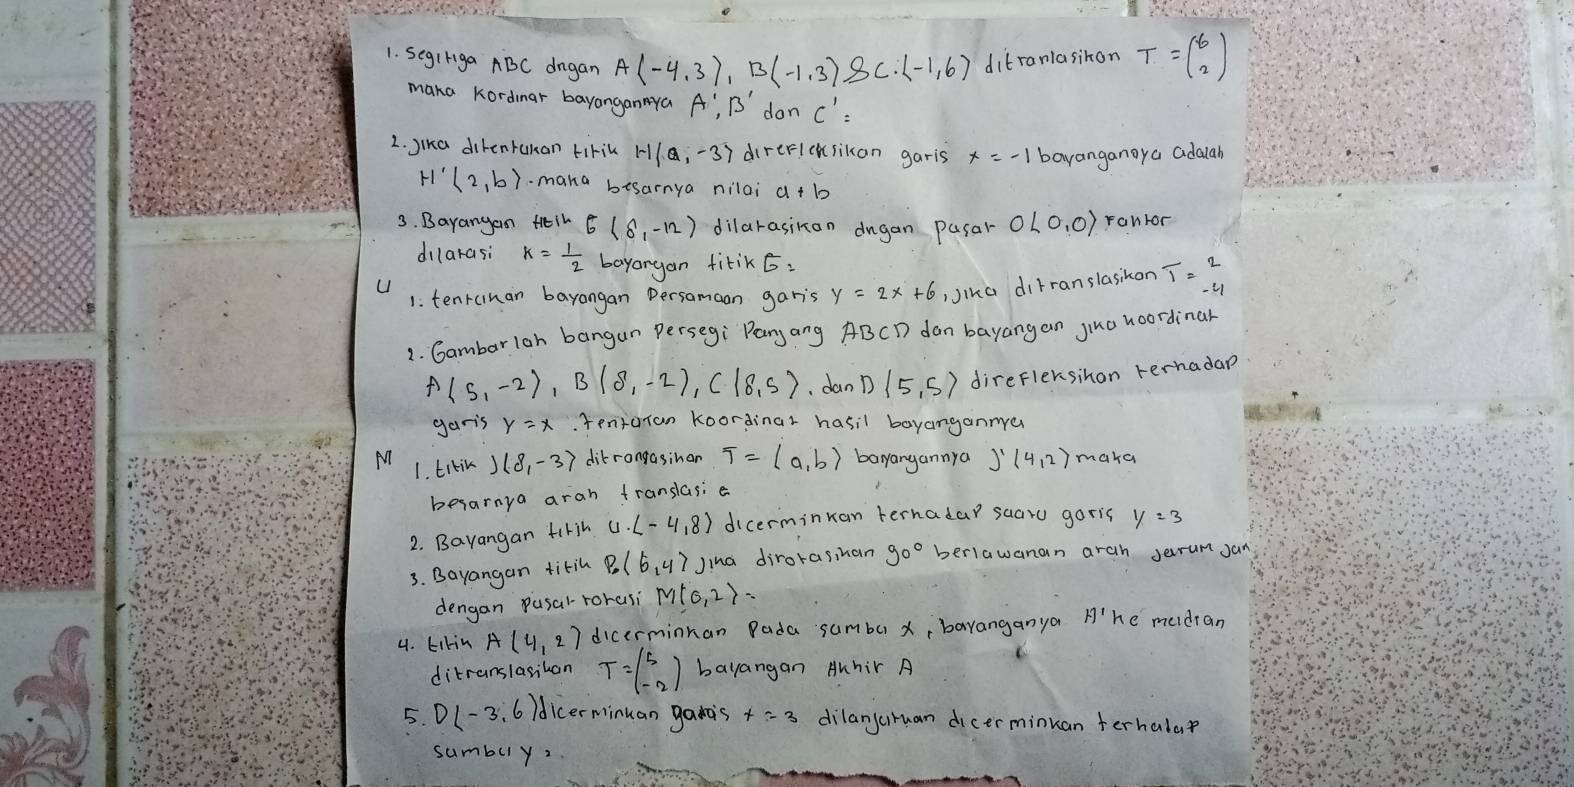 1. Segitiga ABC dngan A(-4,3), B(-1,3) & C.(-1,6) ditranlasikan T = (6 2)
maka kordinat bayangannya A', B' dan C' =
2. jika ditentukan titik H(a,-3) direfleksikan garis x = -1 bayanganoya adalah
H'(2,b). maka besarnya nilai a + b
3. Bayangan titik G (8,-12) dilatasikan dngan pusat O(0,0) Faktor
dilatasi k = 1/2 bayangan titik G =
U 1. tentukan bayangan Persamaan garis y = 2x + 6, jika ditranslasikan T = 2 -4
2. Gambarlah bangun Persegi Panjang ABCD dan bayangan jika koordinat
A(5,-2), B(8,-2), C(8,5), dan D(5,5) direfleksikan terhadap
garis y = x . tentukan koordinat hasil bayangannya
M 1. titik J(8,-3) ditrangasikan T = (a,b) bayangannya J'(4,2) maka
besarnya arah translasi
2. Bayangan titik U.(-4,8) dicerminkan terhadap suatu garis y = 3
3. Bayangan titik B(6,4) jika dirotasikan 90° berlawanan arah jarum jan
dengan pusat rotasi M(0,2) =
4. titik A (4,2) dicerminkan Pada sumbu x, bayanganya A' ke mudian
ditranslasikan T = (5 -2) bayangan Akhir A
5. D(-3,6) dicerminkan garis x = 3 dilanjutkan dicerminkan terhadap
sumbu y =